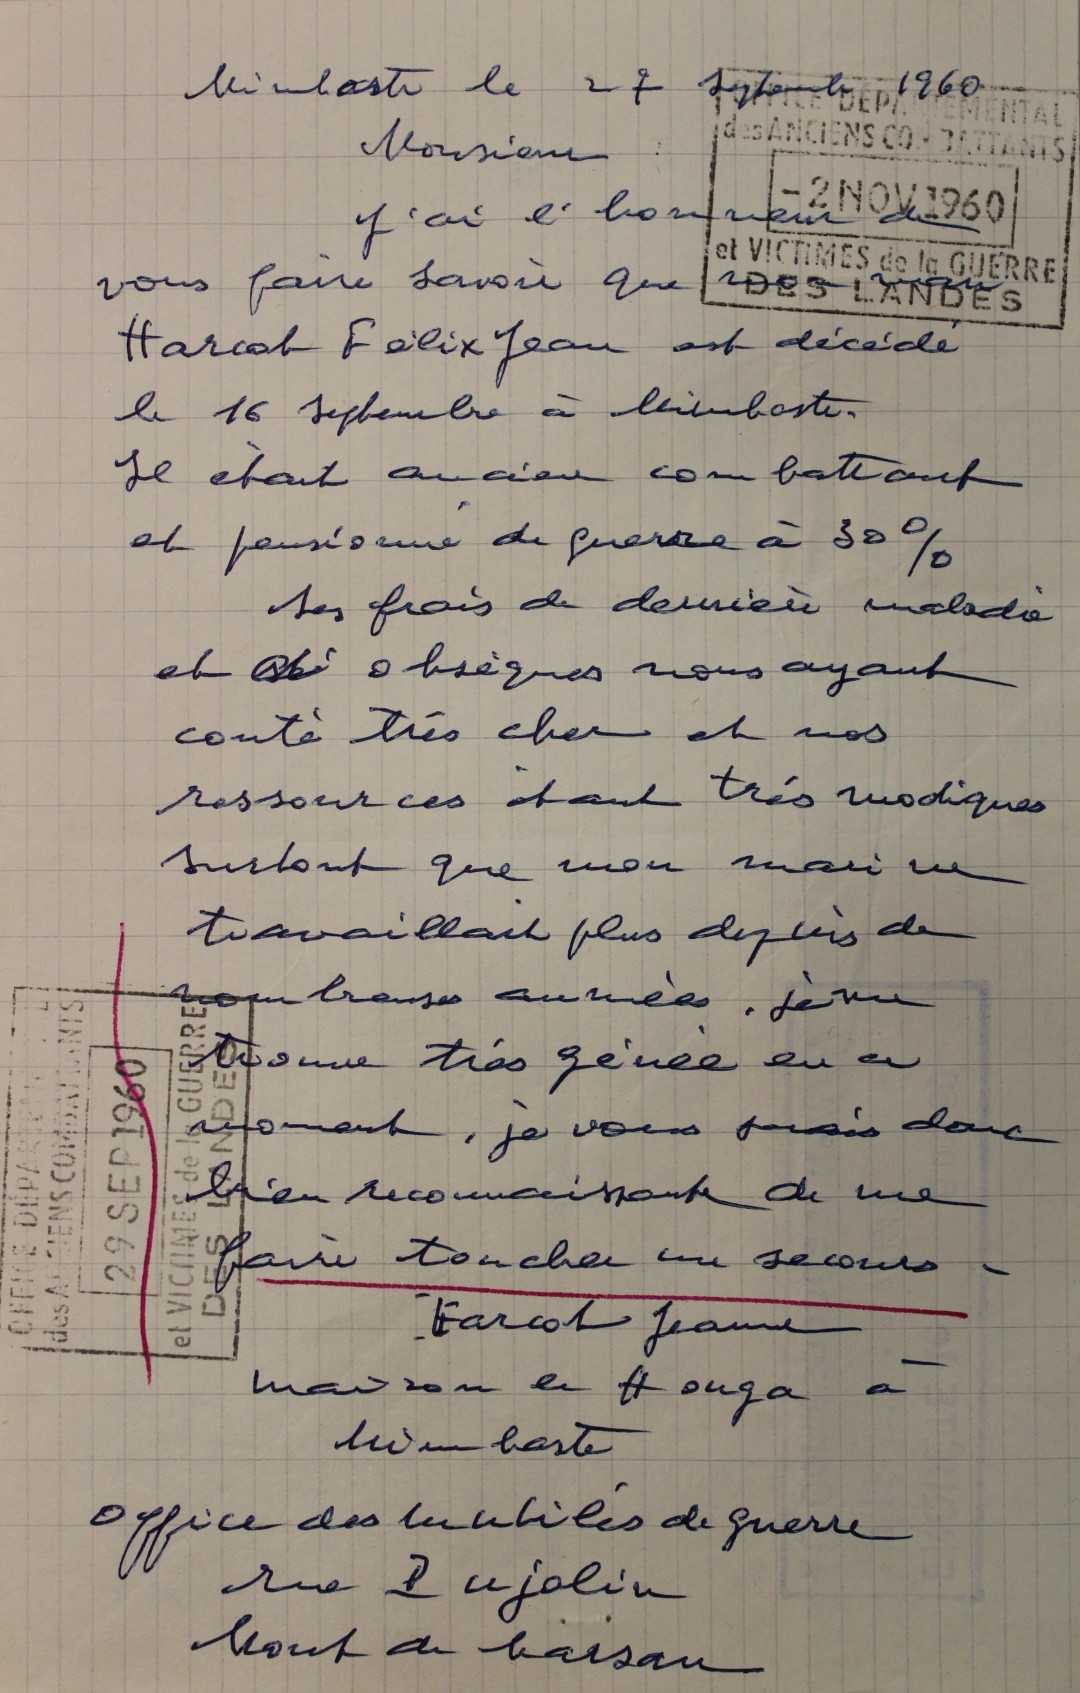 Mimbaste le 27 septembre 1960
OFFICE DEPARTEMENTAL
des ANCIENS COMBATTANTS
-2 NOV 1960
et VICTIMES de la GUERRE
DES LANDES
Monsieur
J'ai l'honneur de
vous faire savoir que mon mari
Harcot Félix Jean est décédé
le 16 septembre à Mimbaste.
Il était ancien combattant
et pensionné de guerre à 30%
Ses frais de dernière maladie
et obsèques nous ayant
couté trés cher et nos
ressources étant trés modiques
surtout que mon mari ne
travaillait plus depuis de
nombreuses années, je me
trouve trés génée en ce
moment, je vous serais donc
bien reconnaissante de me
faire toucher un secours -
Harcot Jeanne
maison le Houga à
Mimbaste
OFFICE DEPARTEMENTAL
des ANCIENS COMBATTANTS
29 SEP 1960
et VICTIMES de la GUERRE
DES LANDES
Office des mutilés de guerre
rue Dujolin
Mont de Marsan